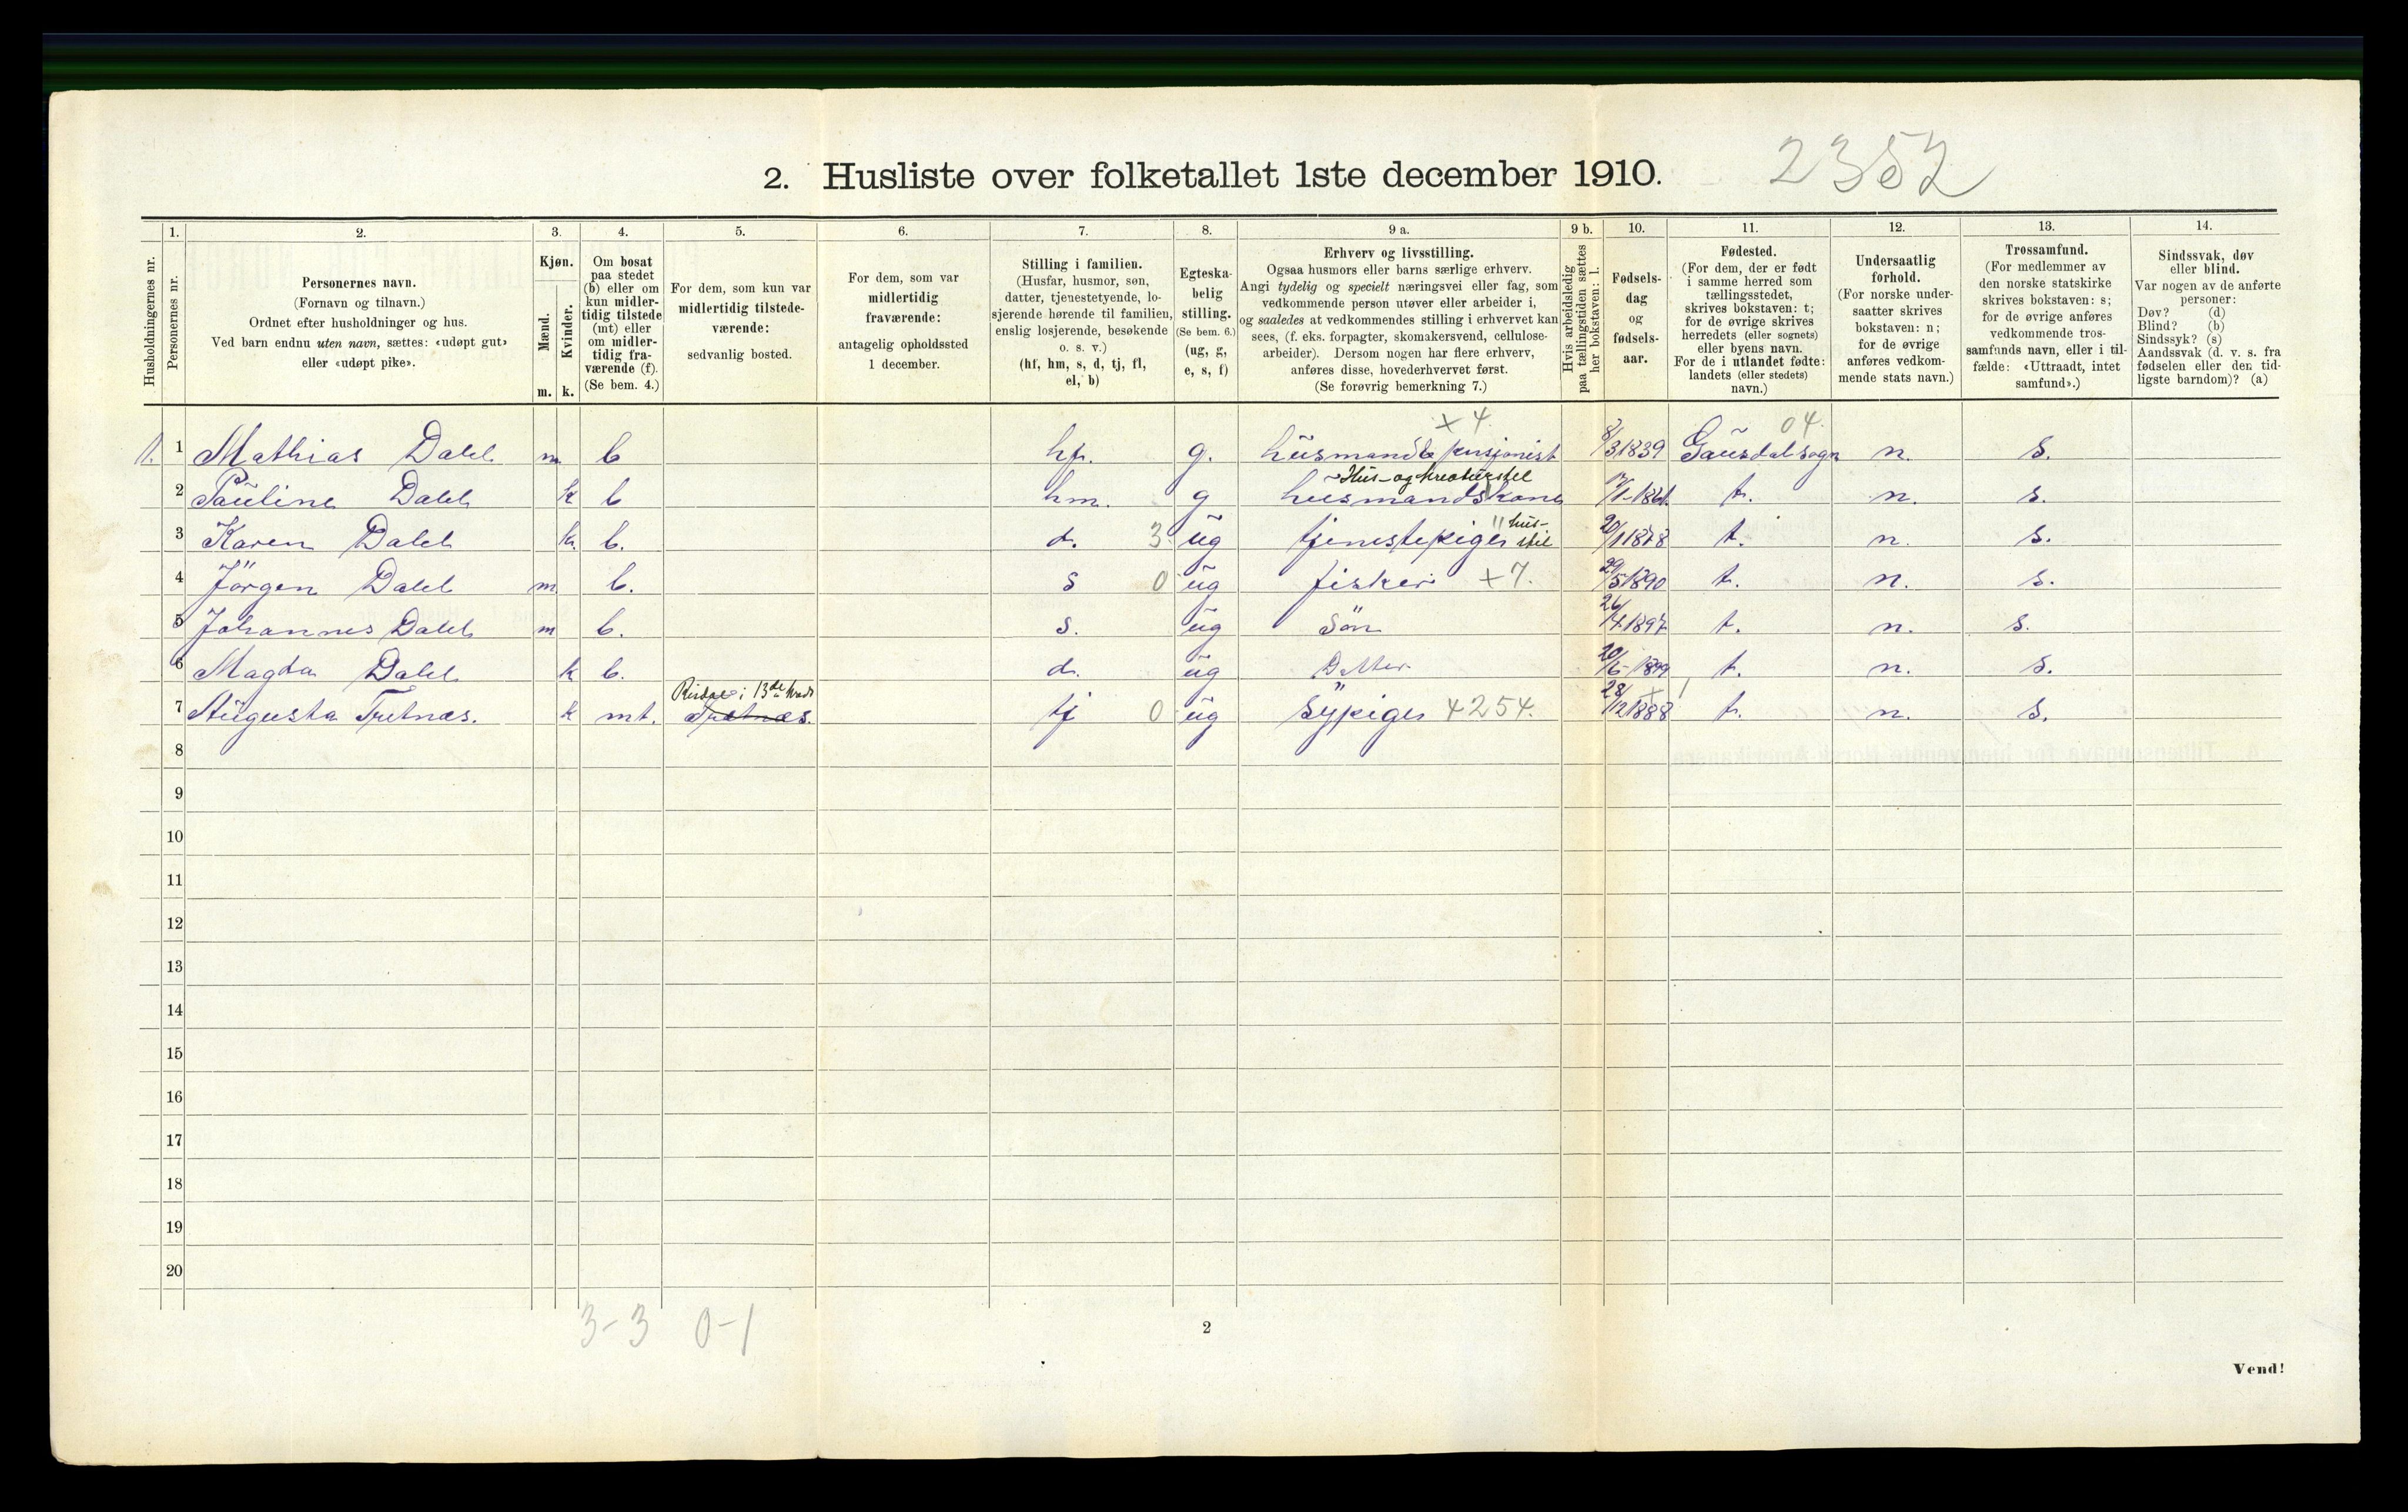 2. Husliste over folketallet 1ste december 1910.
2352
Husholdningernes nr.
1. Personernes nr.
2. Personernes navn.
(Fornavn og tilnavn.)
Ordnet efter husholdninger og hus.
Ved barn endnu uten navn, sættes: «udøpt gut»
eller «udøpt pike».
3. Kjøn.
Mænd. m.
Kvinder. k.
4. Om bosat
paa stedet
(b) eller om
kun midler-
tidig tilstede
(mt) eller
om midler-
tidig fra-
værende (f).
(Se bem. 4.)
5. For dem, som kun var
midlertidig tilstede-
værende:
sedvanlig bosted.
6. For dem, som var
midlertidig
fraværende:
antagelig opholdssted
1 december.
7. Stilling i familien.
(Husfar, husmor, søn,
datter, tjenestetyende, lo-
sjerende hørende til familien,
enslig losjerende, besøkende
o. s. v.)
(hf, hm, s, d, tj, fl,
el, b)
8. Egteska-
belig
stilling.
(Se bem. 6.)
(ug, g,
e, s, f)
9 a. Erhverv og livsstilling.
Ogsaa husmors eller barns særlige erhverv.
Angi tydelig og specielt næringsvei eller fag, som
vedkommende person utøver eller arbeider i,
og saaledes at vedkommendes stilling i erhvervet kan
sees, (f. eks. forpagter, skomakersvend, cellulose-
arbeider). Dersom nogen har flere erhverv,
anføres disse, hovederhvervet først.
(Se forøvrig bemerkning 7.)
9 b. Hvis arbeidsledig
paa tællingstiden sættes
her bokstaven: l.
10. Fødsels-
dag
og
fødsels-
aar.
11. Fødested.
(For dem, der er født
i samme herred som
tællingsstedet,
skrives bokstaven: t;
for de øvrige skrives
herredets (eller sognets)
eller byens navn.
For de i utlandet fødte:
landets (eller stedets)
navn.)
12. Undersaatlig
forhold.
(For norske under-
saatter skrives
bokstaven: n;
for de øvrige
anføres vedkom-
mende stats navn.)
13. Trossamfund.
(For medlemmer av
den norske statskirke
skrives bokstaven: s;
for de øvrige anføres
vedkommende tros-
samfunds navn, eller i til-
fælde: «Uttraadt, intet
samfund».)
14. Sindssvak, døv
eller blind.
Var nogen av de anførte
personer:
Døv? (d)
Blind? (b)
Sindssyk? (s)
Aandssvak (d. v. s. fra
fødselen eller den tid-
ligste barndom)? (a)
x 4. 04.
1. 1 Mathias Dahl m b hf. g. husmand & pensjonist 8/3 1839 Gausdal sogn n. s.
Hus- og kreaturstel
2 Pauline Dahl k b hm. g husmandskone 1861. t. n. s.
3 Karen Dahl k b. d. 3 ug tjenestepige " hus-stel 20/1 1878 t. n. s.
4 Jörgen Dahl m b. s 0 ug fisker x 7. 29/5 1890 t. n. s.
5 Johannes Dahl m b. s. ug Sön 26/4 1897 t. n. s.
6 Magda Dahl k b. d. ug Datter 20/6-1899 t. n. s.
i 13de kreds
7 Augusta Tretnæs. k mt. Tretnæs. tj 0 ug Sypige 4254. 28/12 1888 t. n. s.
8
9
10
11
12
13
14
15
16
17
18
19
20
3-3 0-1
2
Vend!